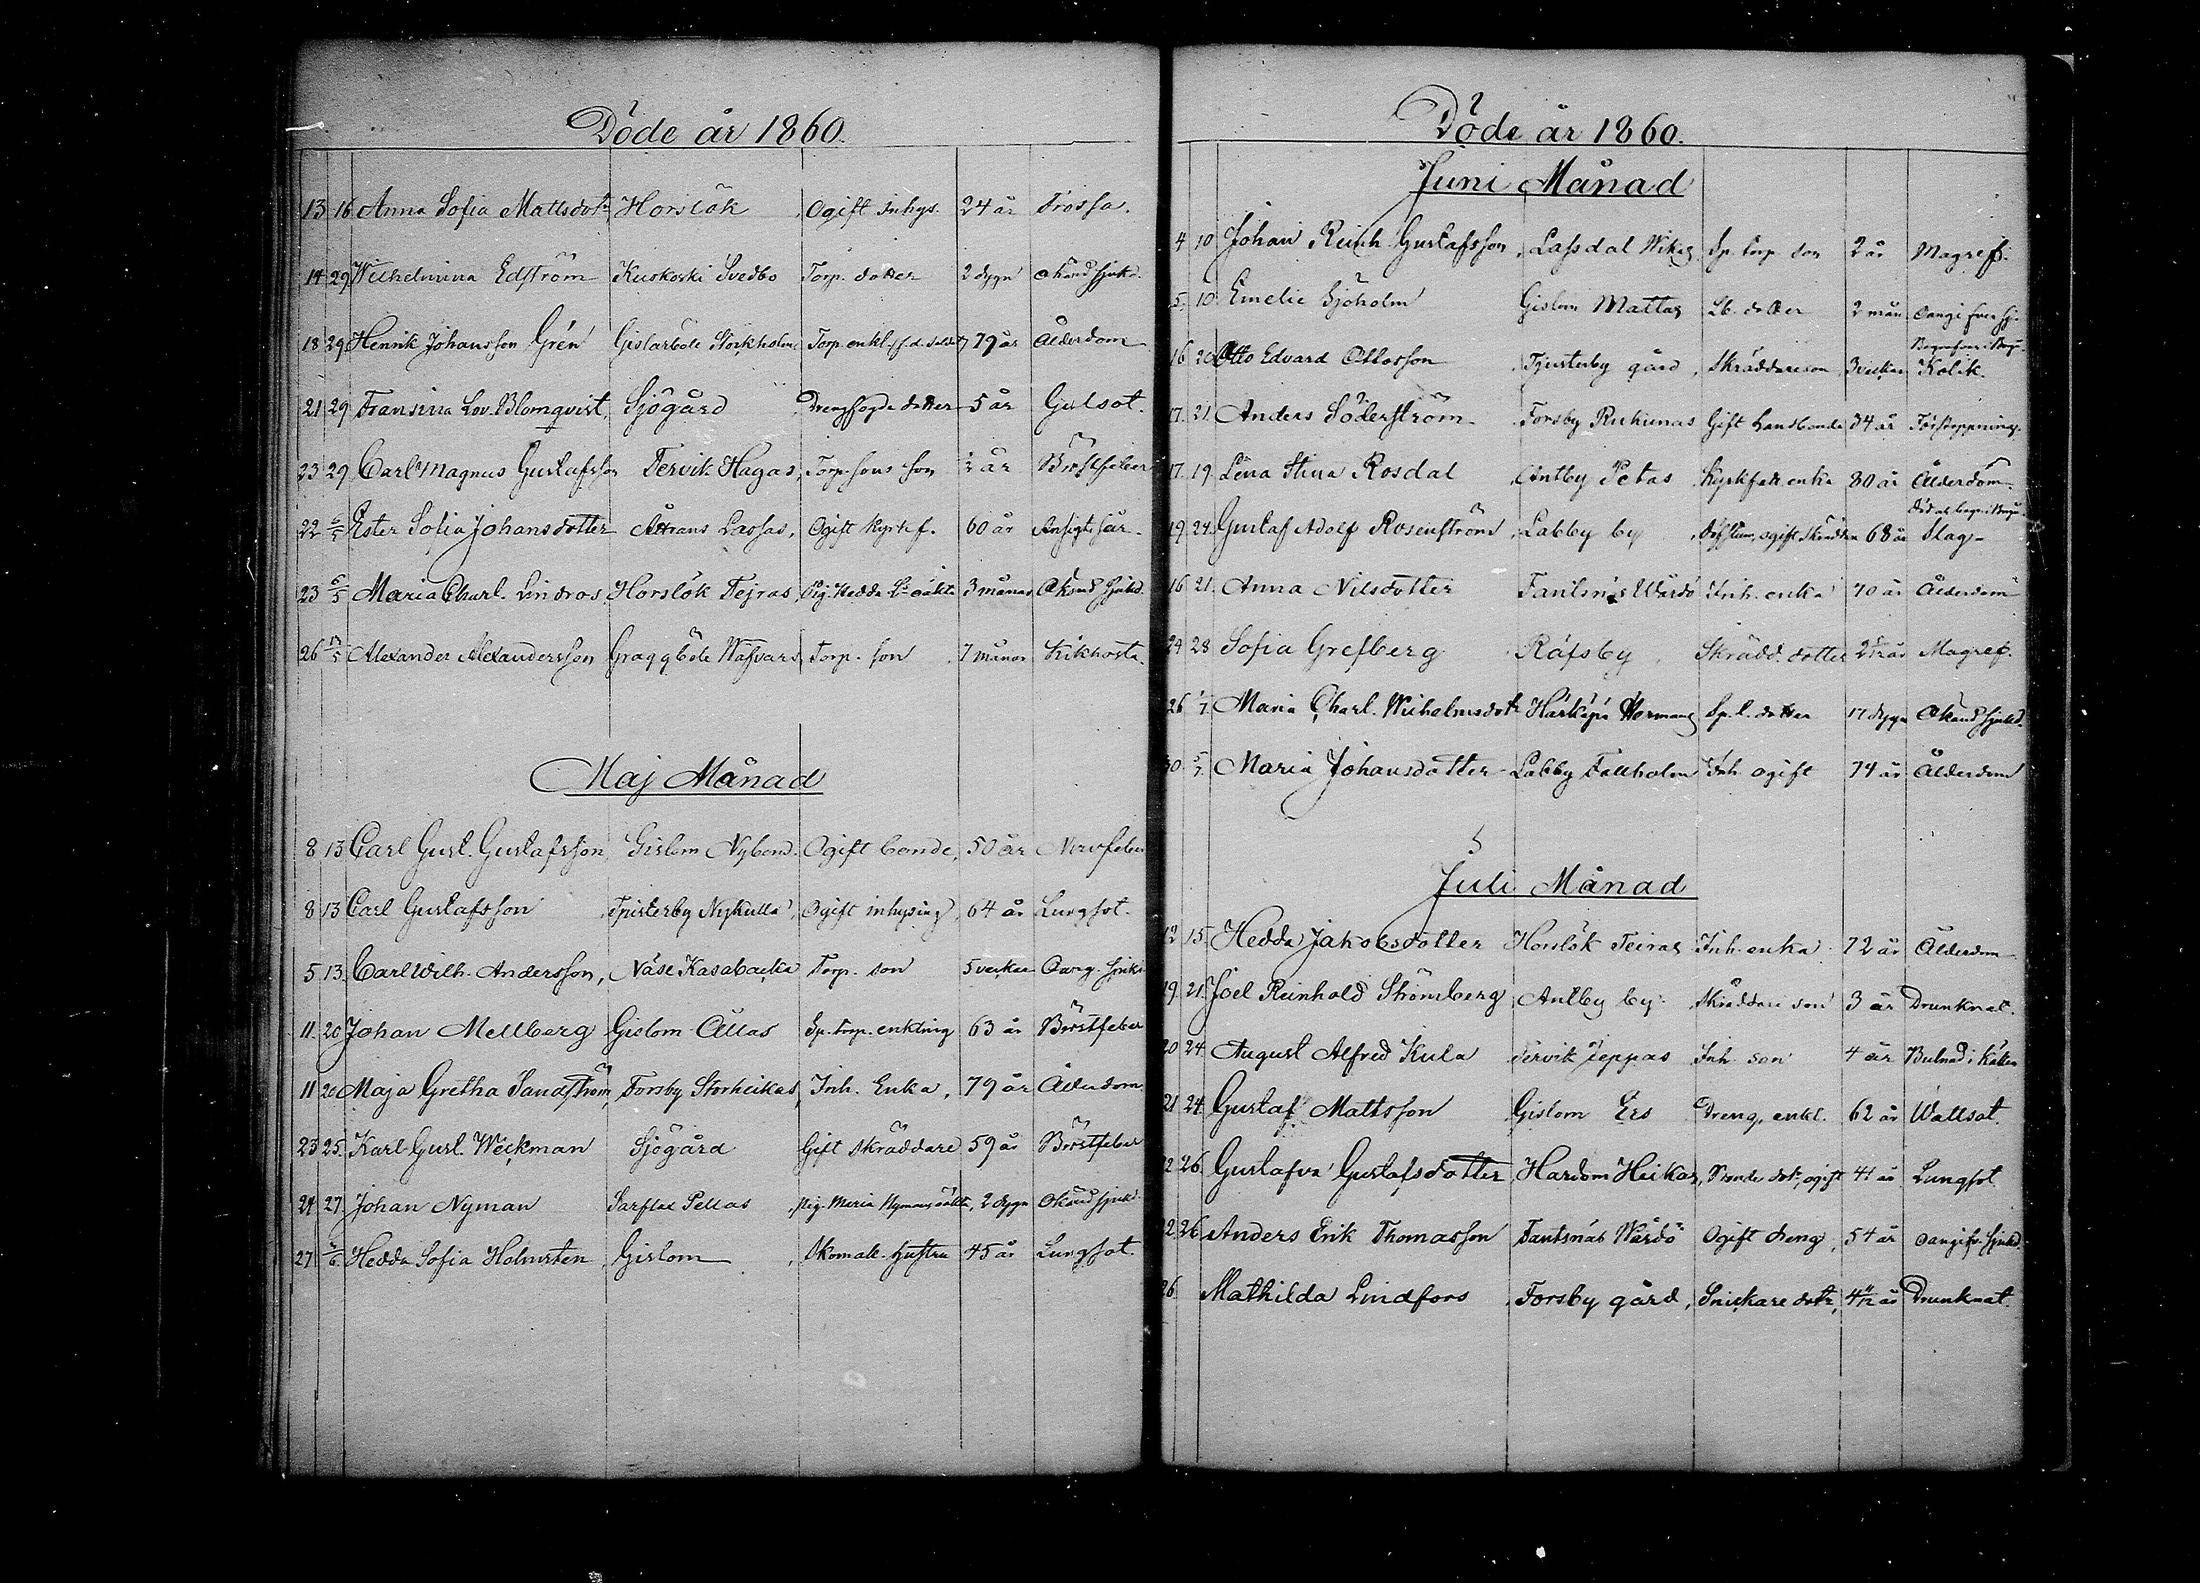 Döde år 1860.
13 16 Anna Sofia Mattsdotr Horslök Ogift inhys. 24 år Frossa.
14 29 Wilhelmina Edström Kuskoski Svedbo Torp. dotter 2 dygn okänd sjukd.
18 29 Henrik Johansson Grén Gislarböle Stockholm Torp. enkl. f.d. soldat 79 år Ålderdom
21 29 Fransina Lov. Blomqvist, Sjögård Drengfogde dotter 5 år Gulsot.
23 29 Carl Magnus Gustafsson Tervik Hagas, Torp. sons son ½ år Bröstfeber
22 Ester Sofia Johansdotter Lassas, Ogift Kyrkf. 60 år Ansigtsår.
23 6/5 Maria Charl. Lindros Horslök Tejras, Pig. Hedda oäkta 3 månar Okänd sjukd.
26 13/5 Alexander Alexandersson Graggböle Wäfvars Torp. son 7 månar Kikhosta.
Maj Månad
8 13 Carl Gust. Gustafsson Gislom Nybond. Ogift bonde, 50 år Nervfeber
8 13 Carl Gustafsson Tjusterby Nykulla, Ogift inhysing, 64 år Lungsot.
5 13 Carl Wilh. Andersson, Näse Kasabacka Torp. son 5 veckar Oang. sjukd.
11. 20 Johan Mellberg Gislom Ållas Sp. torp. enkling 63 år Bröstfeber
11 20 Maja Gretha Sandström, Forsby Storheikas, Inh. Enka, 79 år Ålderdom
23 25. Karl Gust. Weckman Sjögård Gift Skräddare 59 år Bröstfeber
24 27 Johan Nyman Sarflax Pellas, Pig. Maria Nymans oäkta, 2 dygn Okänd sjukd.
27 3/6 Hedda Sofia Holmsten Gislom, Skomak. hustru 45 år Lungsot.
Döde år 1860.
Juni Månad
4 10 Johan Reinh. Gustafsson, Lassdal Wikas Sp. torp. son 2 år Magref.
5. 10. Emelie Sjöholm Gislom Mattas Lb. dotter 2 mån. Oangifven sj.
16 20 Otto Edvard Ottosson, Tjusterby gård, Skräddareson 3 veckar Kolik.
17. 21. Anders Söderström Forsby Ruhunas Gift Landbonde 34 år Förstoppning.
17. 19. Lena Stina Rosdal Antby Petas Kyrkfatt. enka 80 år Ålderdom.
19 24. Gustaf Adolf Rosenström, Labby by, Döfstum, ogift Skräddare 68 år Slag.
16 21. Anna Nilsdotter Fantsnäs Wårdö Inh. enka 70 år Ålderdom
24 28 Sofia Grefberg Räfsby, Skrädd. dotter år Magref.
26 1/7. Maria Charl. Wilhelmsdotr Härkäpä Hermans Sp. l. dotter 17 dygn Okänd sjukd.
30. 5/7. Maria Johansdotter Labby Fallholm Inh. ogift 74 år Ålderdom
Juli Månad
12 15. Hedda Jakobsdotter Horslök Teiras Inh. enka 72 år Ålderdom
19. 21. Joel Reinhold Strömberg, Antby by. Skräddare son 3 år Drunknat.
20 24. August Alfred Kula Tervik Jeppas Inh. son 4 år Bulnad i
21 24. Gustaf Mattsson Gislom Ers Dreng, enkl. 62 år Wattsot.
22 26. Gustafva Gustafsdotter, Hardom Heikas, Bonde dotr, ogift 41 år Lungsot
22 26 Anders Erik Thomasson Fantsnäs Wårdö Ogift dreng, 54 år oangifv. sjukd.
26. Mathilda Lindfors, Forsby gård, Snickare dotr, år Drunknat.